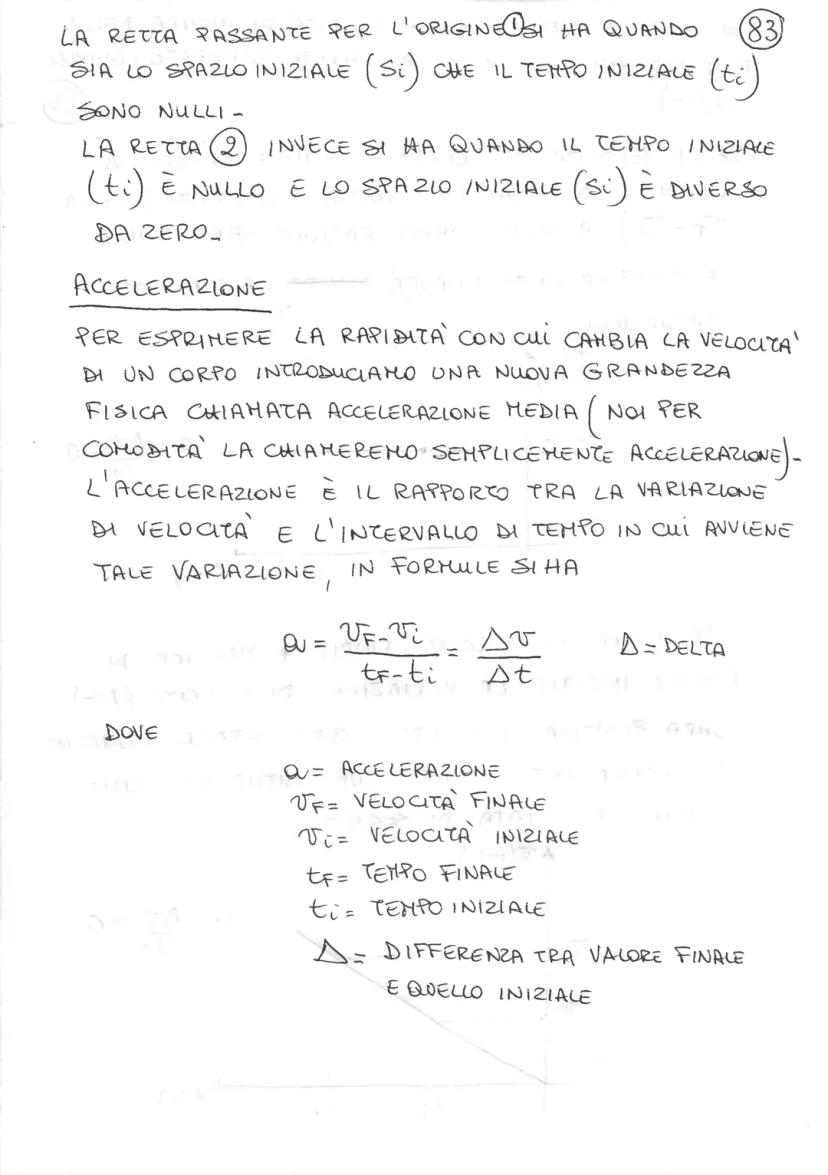 LA RETTA PASSANTE PER L'ORIGINE ① SI HA QUANDO 83
SIA LO SPAZIO INIZIALE (Si) CHE IL TEMPO INIZIALE (ti)
SONO NULLI-
LA RETTA ② INVECE SI HA QUANDO IL TEMPO INIZIALE
(ti) È NULLO E LO SPAZIO INIZIALE (Si) È DIVERSO
DA ZERO-
ACCELERAZIONE
PER ESPRIMERE LA RAPIDITA' CON CUI CAMBIA LA VELOCITA'
DI UN CORPO INTRODUCIAMO UNA NUOVA GRANDEZZA
FISICA CHIAMATA ACCELERAZIONE MEDIA (NOI PER
COMODITA' LA CHIAMEREMO SEMPLICEMENTE ACCELERAZIONE)-
L'ACCELERAZIONE È IL RAPPORTO TRA LA VARIAZIONE
DI VELOCITA' E L'INTERVALLO DI TEMPO IN CUI AVVIENE
TALE VARIAZIONE, IN FORMULE SI HA
a = (vF - vi)/(tF - ti) = Δv/Δt Δ = DELTA
DOVE
a = ACCELERAZIONE
vF = VELOCITA' FINALE
vi = VELOCITA' INIZIALE
tF = TEMPO FINALE
ti = TEMPO INIZIALE
Δ = DIFFERENZA TRA VALORE FINALE
E QUELLO INIZIALE